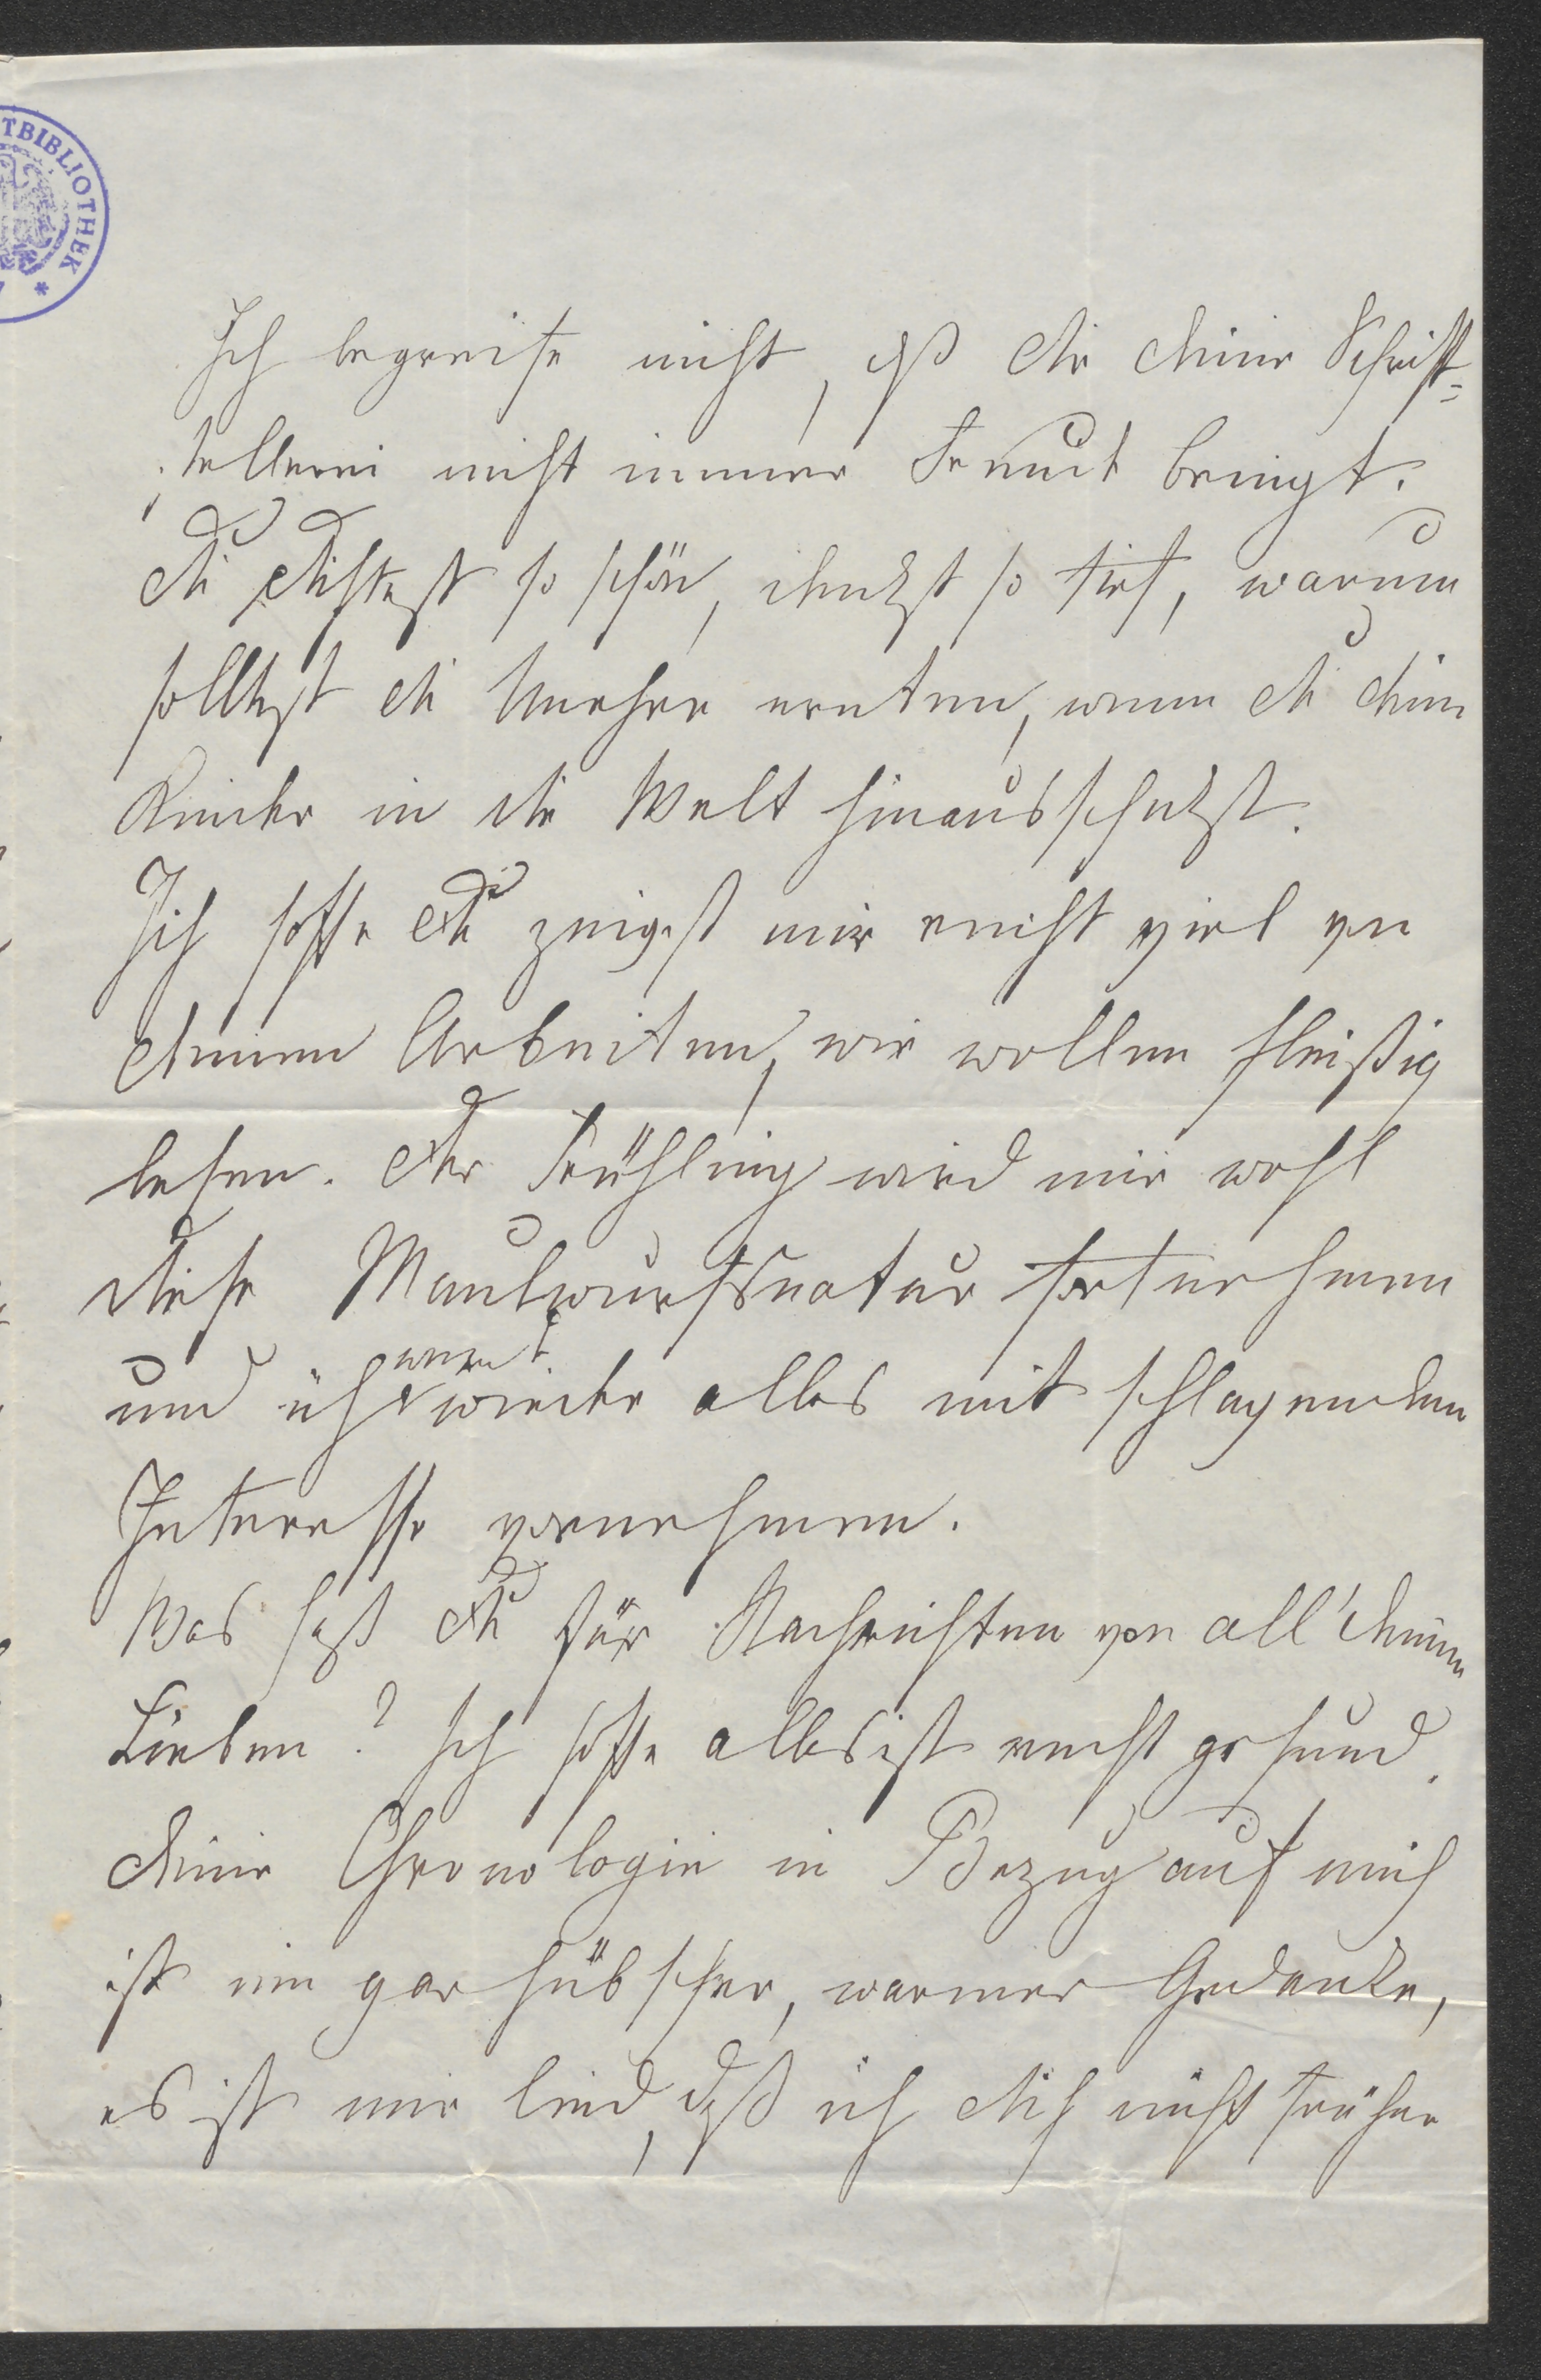 TBIBLIOTHEK *
Ich begreife nicht, daß Dir Deine Schrift-
stellerei nicht immer Freude bringt.
Du dichtest so schön, denkst so tief, warum
solltest Du Unehre ernten, wenn Du Deine
Kinder in die Welt hinausschickst.
Ich hoffe Du zeigest mir recht viel von
Deinen Arbeiten, wir wollen fleißig
lesen. Der Frühling wird mir wohl
diese Maulwurfsnatur fortnehmen
und ich werde wieder alles mit schlagendem
Interesse vornehmen.
Was hast Du für Nachrichten von all' Deinen
Lieben? Ich hoffe alles ist recht gesund.
Deine Chronologie in Bezug auf mich
ist ein gar hübscher, warmer Gedanke,
es ist mir leid, daß ich Dich nicht früher